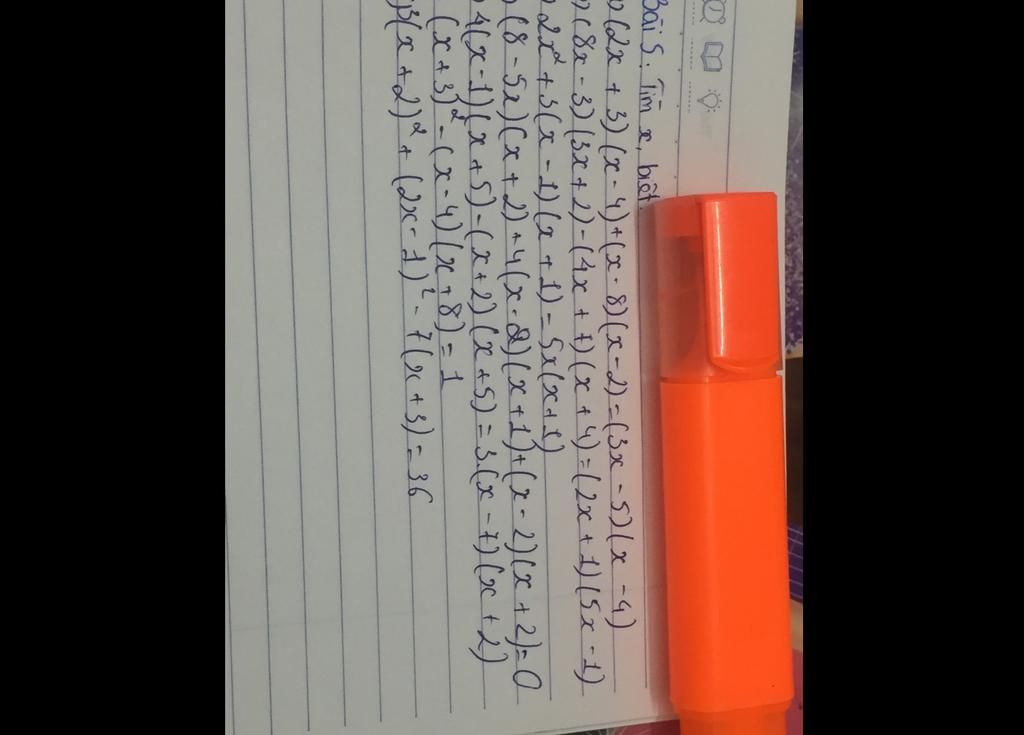 Bài 5: Tìm x, biết:
) (2x + 3)(x - 4) + (x - 8)(x - 2) = (3x - 5)(x - 4)
) (8x - 3)(3x + 2) - (4x + 7)(x + 4) = (2x + 1)(5x - 1)
) 2x² + 3(x - 1)(x + 1) = 5x(x + 1)
) (8 - 5x)(x + 2) + 4(x - 2)(x + 1) + (x - 2)(x + 2) = 0
) 4(x - 1)(x + 5) - (x + 2)(x + 5) = 3.(x - 7)(x + 2)
(x + 3)² - (x - 4)(x + 8) = 1
) 3(x + 2)² + (2x - 1)² - 7(x + 3) = 36